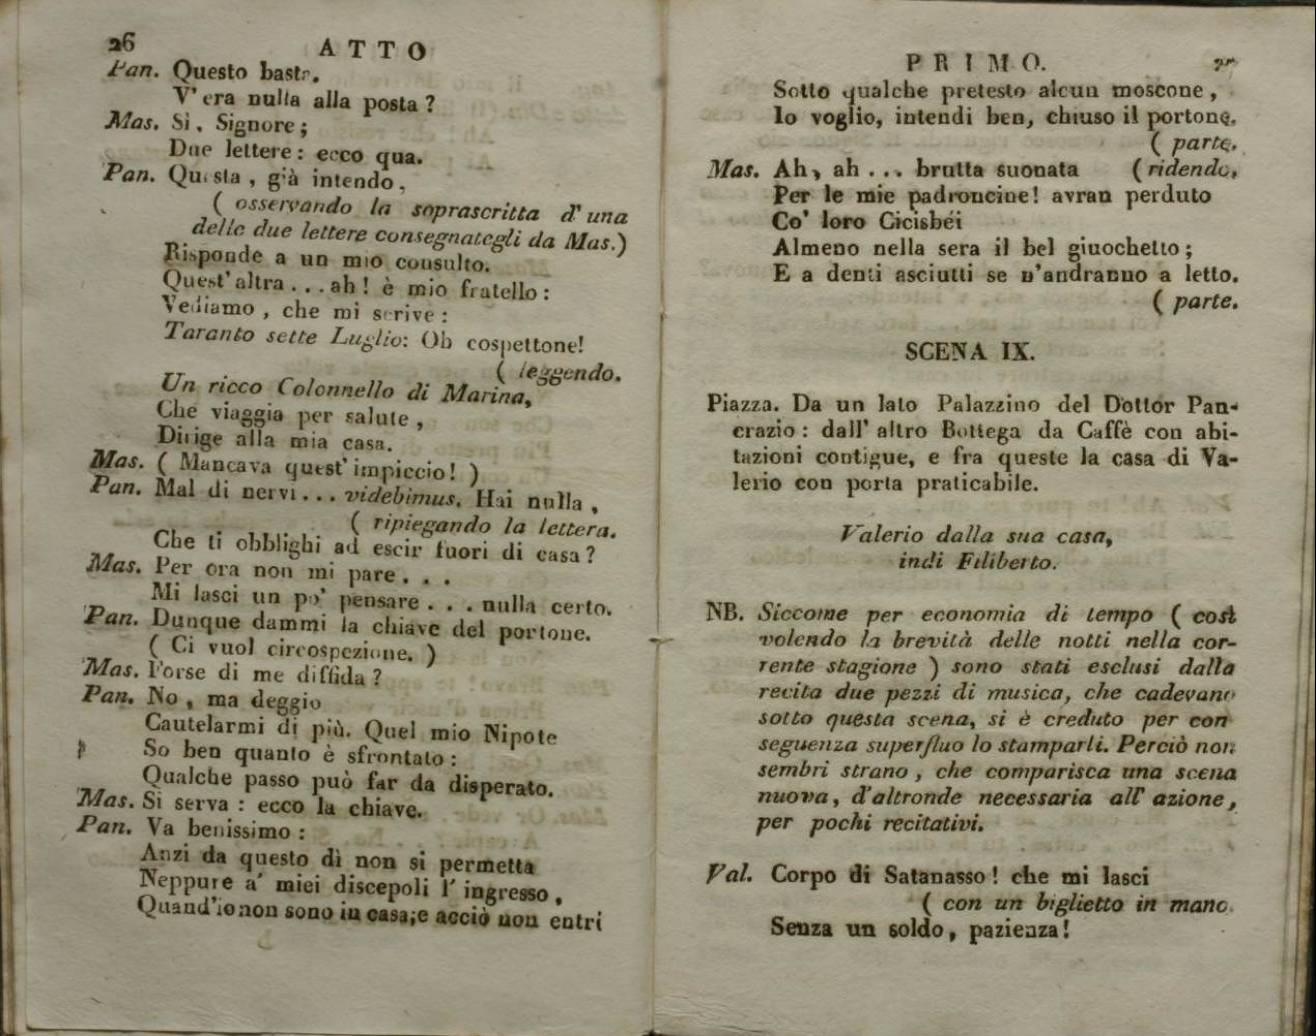 26
ATTO
Pan. Questo basta.
V'era nulla alla posta?
Mas. Sì, Signore;
Due lettere: ecco qua.
Pan. Questa, già intendo,
( osservando la soprascritta d'una
delle due lettere consegnategli da Mas.)
Risponde a un mio consulto.
Quest'altra...ah! è mio fratello:
Vediamo, che mi scrive:
Taranto sette Luglio: Oh cospettone!
( leggendo.
Un ricco Colonnello di Marina,
Che viaggia per salute,
Dirige alla mia casa.
Mas. ( Mancava quest'impiccio! )
Pan. Mal di nervi... videbimus. Hai nulla,
( ripiegando la lettera.
Che ti obblighi ad escir fuori di casa?
Mas. Per ora non mi pare...
Mi lasci un po' pensare... nulla certo.
Pan. Dunque dammi la chiave del portone.
( Ci vuol circospezione. )
Mas. Forse di me diffida?
Pan. No, ma deggio
Cautelarmi di più. Quel mio Nipote
So ben quanto è sfrontato:
Qualche passo può far da disperato.
Mas. Si serva: ecco la chiave.
Pan. Va benissimo:
Anzi da questo dì non si permetta
Neppure a' miei discepoli l'ingresso,
Quand'io non sono in casa; e acciò non entri
PRIMO.
Sotto qualche pretesto alcun moscone,
Io voglio, intendi ben, chiuso il portone.
( parte.
Mas. Ah, ah... brutta suonata ( ridendo,
Per le mie padroncine! avran perduto
Co' loro Cicisbéi
Almeno nella sera il bel giuochetto;
E a denti asciutti se n'andranno a letto.
( parte.
SCENA IX.
Piazza. Da un lato Palazzino del Dottor Pan-
crazio: dall'altro Bottega da Caffè con abi-
tazioni contigue, e fra queste la casa di Va-
lerio con porta praticabile.
Valerio dalla sua casa,
indi Filiberto.
NB. Siccome per economia di tempo ( così
volendo la brevità delle notti nella cor-
rente stagione ) sono stati esclusi dalla
recita due pezzi di musica, che cadevano
sotto questa scena, si è creduto per con
seguenza superfluo lo stamparli. Perciò non
sembri strano, che comparisca una scena
nuova, d'altronde necessaria all'azione,
per pochi recitativi.
Val. Corpo di Satanasso! che mi lasci
( con un biglietto in mano.
Senza un soldo, pazienza!